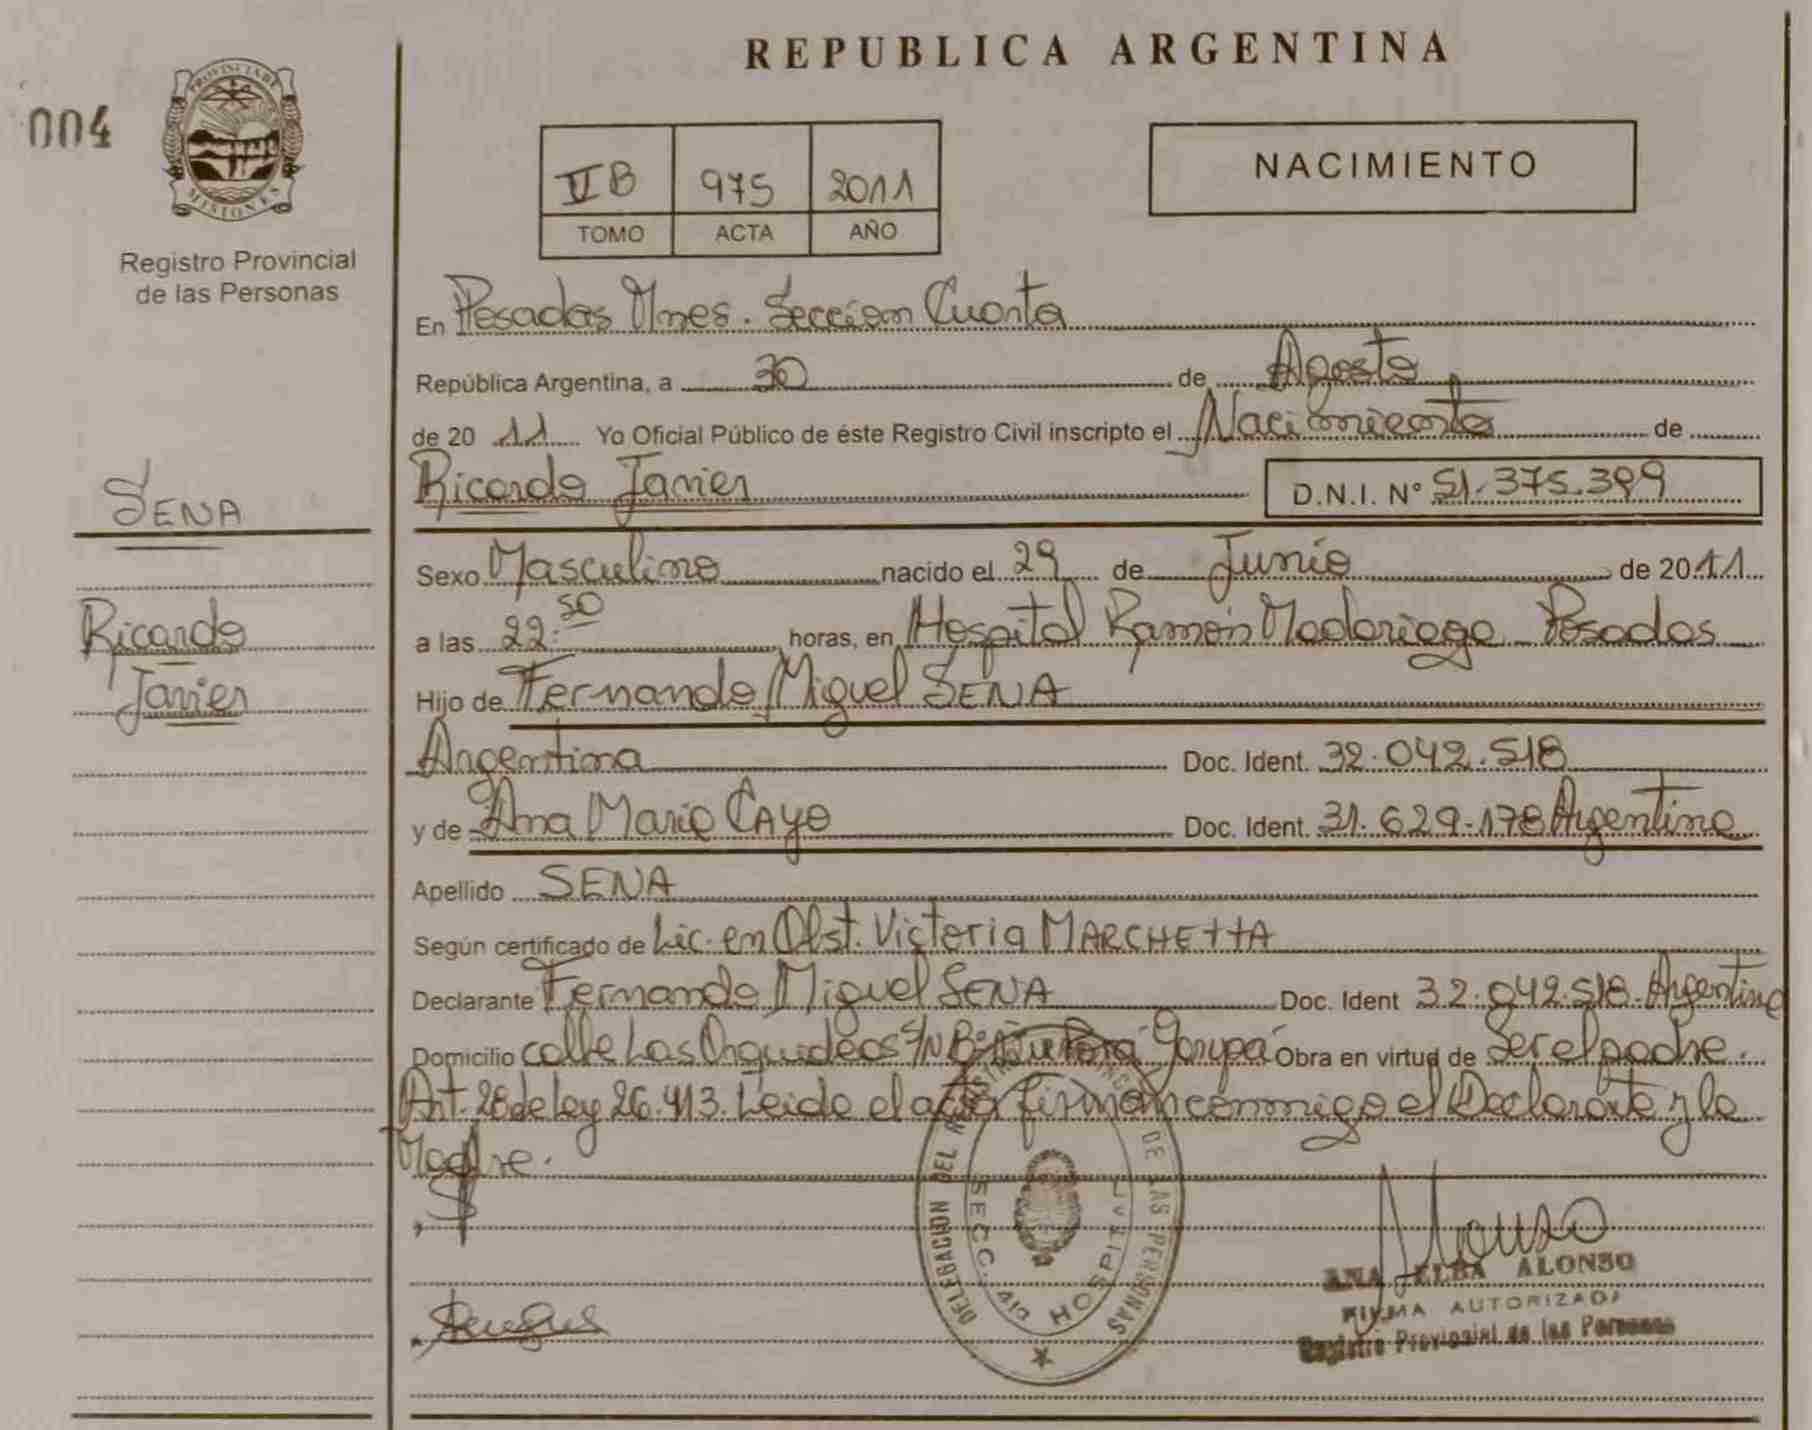 REPUBLICA ARGENTINA
004
PROVINCIA DE
MISIONES
Registro Provincial
de las Personas
VI B 975 2011
TOMO ACTA AÑO
NACIMIENTO
En Posadas Mnes. Sección Cuarta
República Argentina, a 30 de Agosto
de 20 11 Yo Oficial Público de éste Registro Civil inscripto el Nacimiento de
Ricardo Javier D.N.I. Nº 51.375.399
SENA
Ricardo
Javier
Sexo Masculino nacido el 29 de Junio de 2011
a las 22:50 horas, en Hospital Ramón Madariaga Posadas
Hijo de Fernando Miguel SENA
Argentina Doc. Ident. 32.042.518
y de Ana Maria CAyo Doc. Ident. 31.629.178 Argentina
Apellido SENA
Según certificado de Lic. en Obst. Victoria MARCHETTA
Declarante Fernando Miguel SENA Doc. Ident 32.042.518 Argentina
Domicilio calle Las Orquideas S/N Bº Garupá Obra en virtud de Ser el padre.
Art. 28 de Ley 26.413. Leida el acta firman conmigo el Declarante y la
Madre.
DELEGACION DEL REGISTRO DE LAS PERSONAS
SECC. 4ta HOSPITAL
ANA ELBA ALONSO
FIRMA AUTORIZADA
Registro Provincial de las Personas